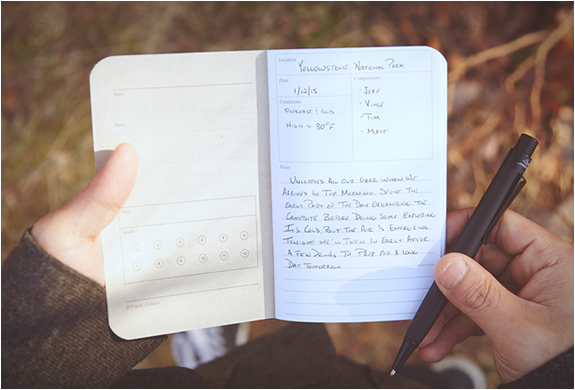 Name
Month
1 2 3 4 5 6
7 8 9 10 11 12
Location
YELLOWSTONE NATIONAL PARK
Date
1/12/15
Companions
· JEFF
· VINCE
· TIM
· MATT
Conditions
OVERCAST & COLD
HIGH ≈ 30°F
Notes
UNLOADED ALL OUR GEAR WHEN WE
ARRIVED IN THE MORNING. SPENT THE
EARLY PART OF THE DAY ORGANIZING THE
CAMPSITE BEFORE DOING SOME EXPLORING
IT'S COLD, BUT THE AIR IS ENERGIZING.
TONIGHT WE'LL TURN IN EARLY AFTER
A FEW DRINKS TO PREP FOR A LONG
DAY TOMORROW.